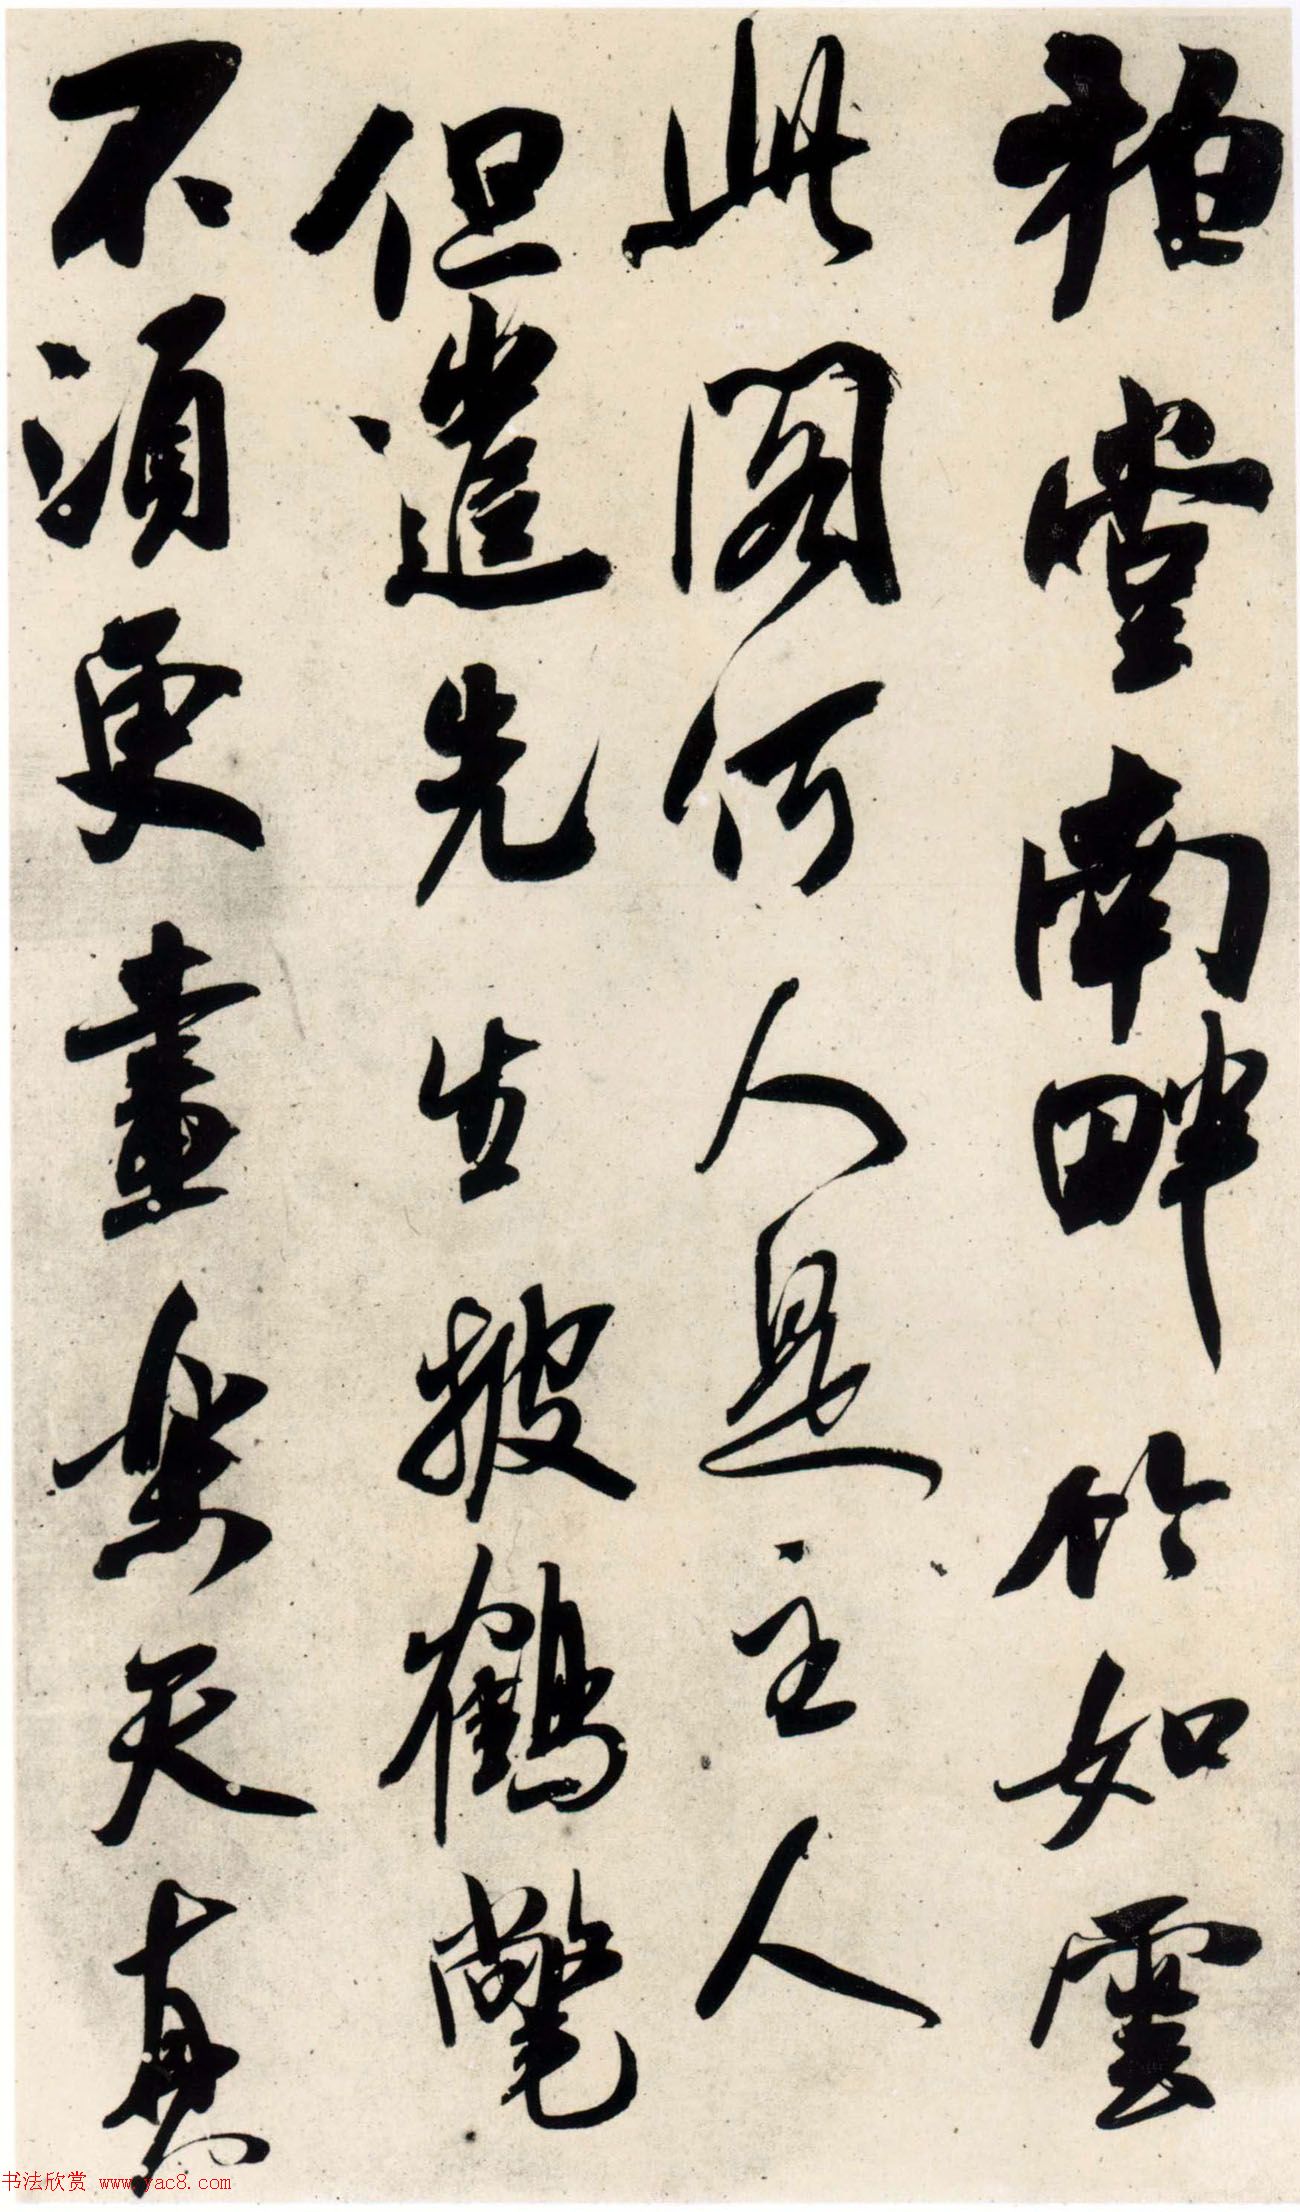 柏堂南畔竹如雲
此閣何人是主人
但遣先生披鶴氅
不須更畫樂天真
书法欣赏 www.yac8.com